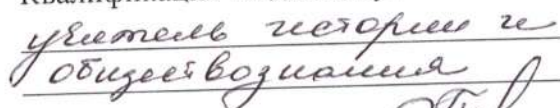 учитель истории и
обществознания